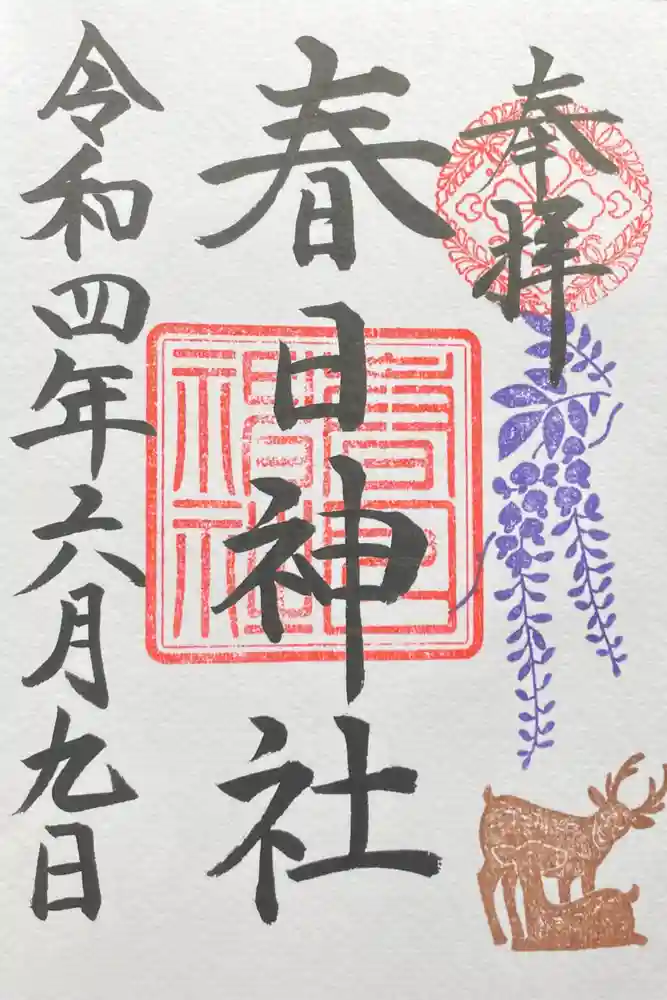 奉拝
春日神社
春日神社
令和四年六月九日